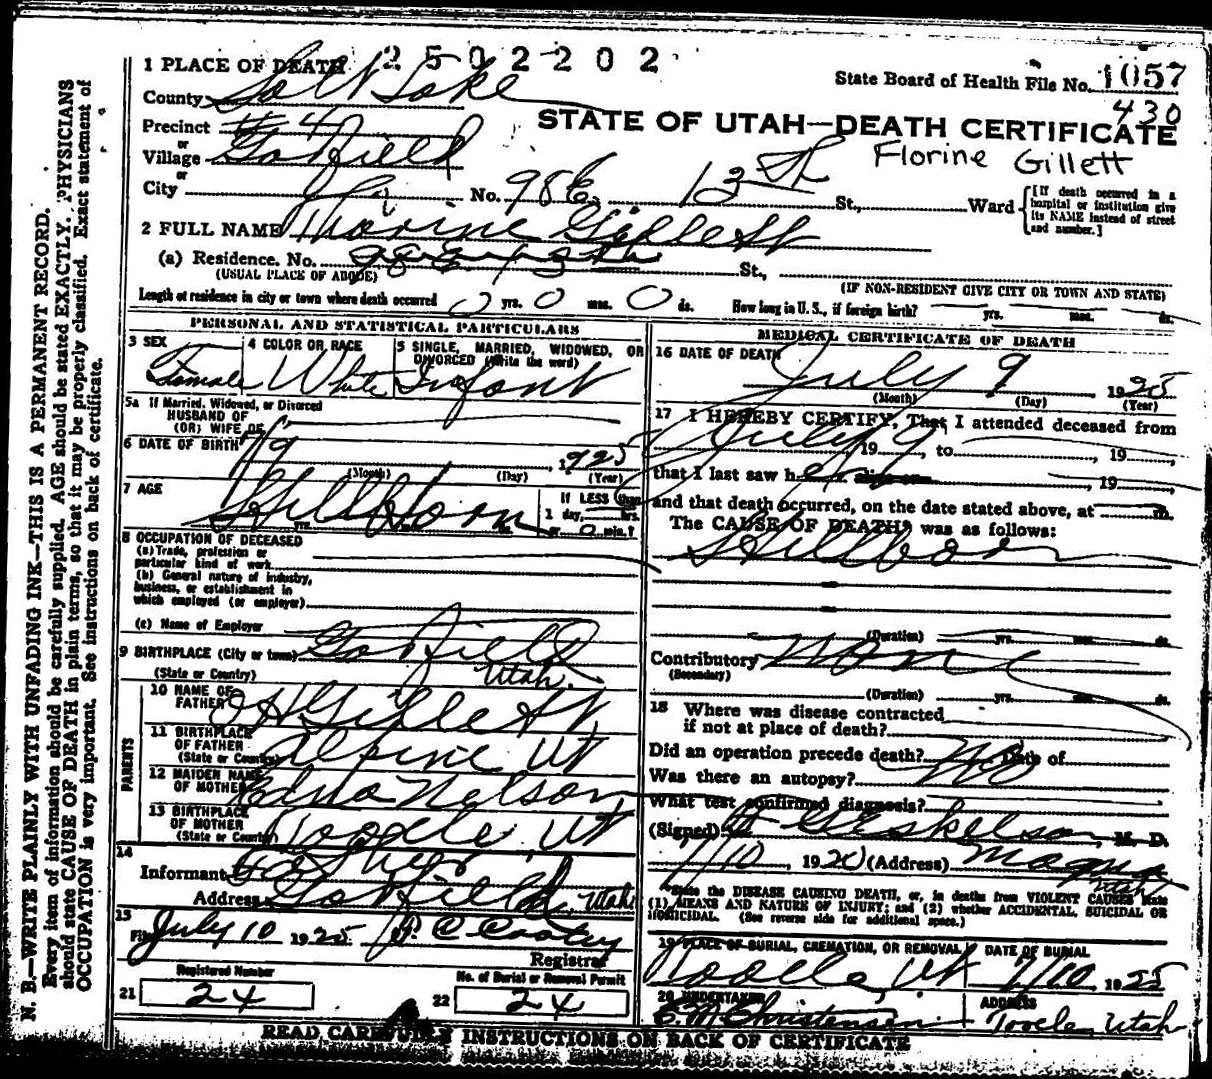 2502202
1 PLACE OF DEATH
State Board of Health File No. 1057
430
County Salt Lake
STATE OF UTAH—DEATH CERTIFICATE
Precinct #4
or
Village Garfield
Florine Gillett
or
City No. 986 13th St., Ward
[If death occurred in a hospital or institution give its NAME instead of street and number.]
2 FULL NAME Florine Gillett
(a) Residence. No. 986 13th St.,
(USUAL PLACE OF ABODE)
(IF NON-RESIDENT GIVE CITY OR TOWN AND STATE)
Length of residence in city or town where death occurred 0 yrs. 0 mos. 0 ds. How long in U. S., if foreign birth? yrs. mos. ds.
PERSONAL AND STATISTICAL PARTICULARS
3 SEX Female
4 COLOR OR RACE White
5 SINGLE, MARRIED, WIDOWED, OR DIVORCED (Write the word) Infant
5a If Married, Widowed, or Divorced
HUSBAND OF
(OR) WIFE OF
6 DATE OF BIRTH 7/9 1925
(Month) (Day) (Year)
7 AGE Stillborn
yrs. ms.
If LESS than
1 day, hrs.
or 0 min.?
8 OCCUPATION OF DECEASED
(a) Trade, profession or
particular kind of work
(b) General nature of industry,
business, or establishment in
which employed (or employer)
(c) Name of Employer
9 BIRTHPLACE (City or town) Garfield
(State or Country) Utah.
PARENTS
10 NAME OF
FATHER Gillett
11 BIRTHPLACE
OF FATHER
(State or Country) Alpine Ut
12 MAIDEN NAME
OF MOTHER Edna Nelson
13 BIRTHPLACE
OF MOTHER
(State or Country) Tooele, Ut
14
Informant Father
Address Garfield, Utah
15
Filed July 10 1925
Registrar
Registered Number
21 24
No. of Burial or Removal Permit
22 24
MEDICAL CERTIFICATE OF DEATH
16 DATE OF DEATH
July 9 1925
(Month) (Day) (Year)
17 I HEREBY CERTIFY, That I attended deceased from
July 9, 19 , to , 19 ,
that I last saw her alive on , 19 ,
and that death occurred, on the date stated above, at m.
The CAUSE OF DEATH* was as follows:
Stillborn
(Duration) yrs. mos. ds.
Contributory None
(Secondary)
(Duration) yrs. mos. ds.
18 Where was disease contracted
if not at place of death?
Did an operation precede death? No Date of
Was there an autopsy?
What test confirmed diagnosis?
(Signed) M. D.
7/10, 1920 (Address) Magna
Utah
*State the DISEASE CAUSING DEATH, or, in deaths from VIOLENT CAUSES state
(1) MEANS AND NATURE OF INJURY; and (2) whether ACCIDENTAL, SUICIDAL OR
HOMICIDAL. (See reverse side for additional space.)
19 PLACE OF BURIAL, CREMATION, OR REMOVAL
Tooele, Ut
DATE OF BURIAL
7/10 1925
20 UNDERTAKER
E. M. Christensen
ADDRESS
Tooele, Utah
READ CAREFULLY INSTRUCTIONS ON BACK OF CERTIFICATE
N. B.—WRITE PLAINLY WITH UNFADING INK—THIS IS A PERMANENT RECORD.
Every item of information should be carefully supplied. AGE should be stated EXACTLY. PHYSICIANS
should state CAUSE OF DEATH in plain terms, so that it may be properly classified. Exact statement of
OCCUPATION is very important. See instructions on back of certificate.